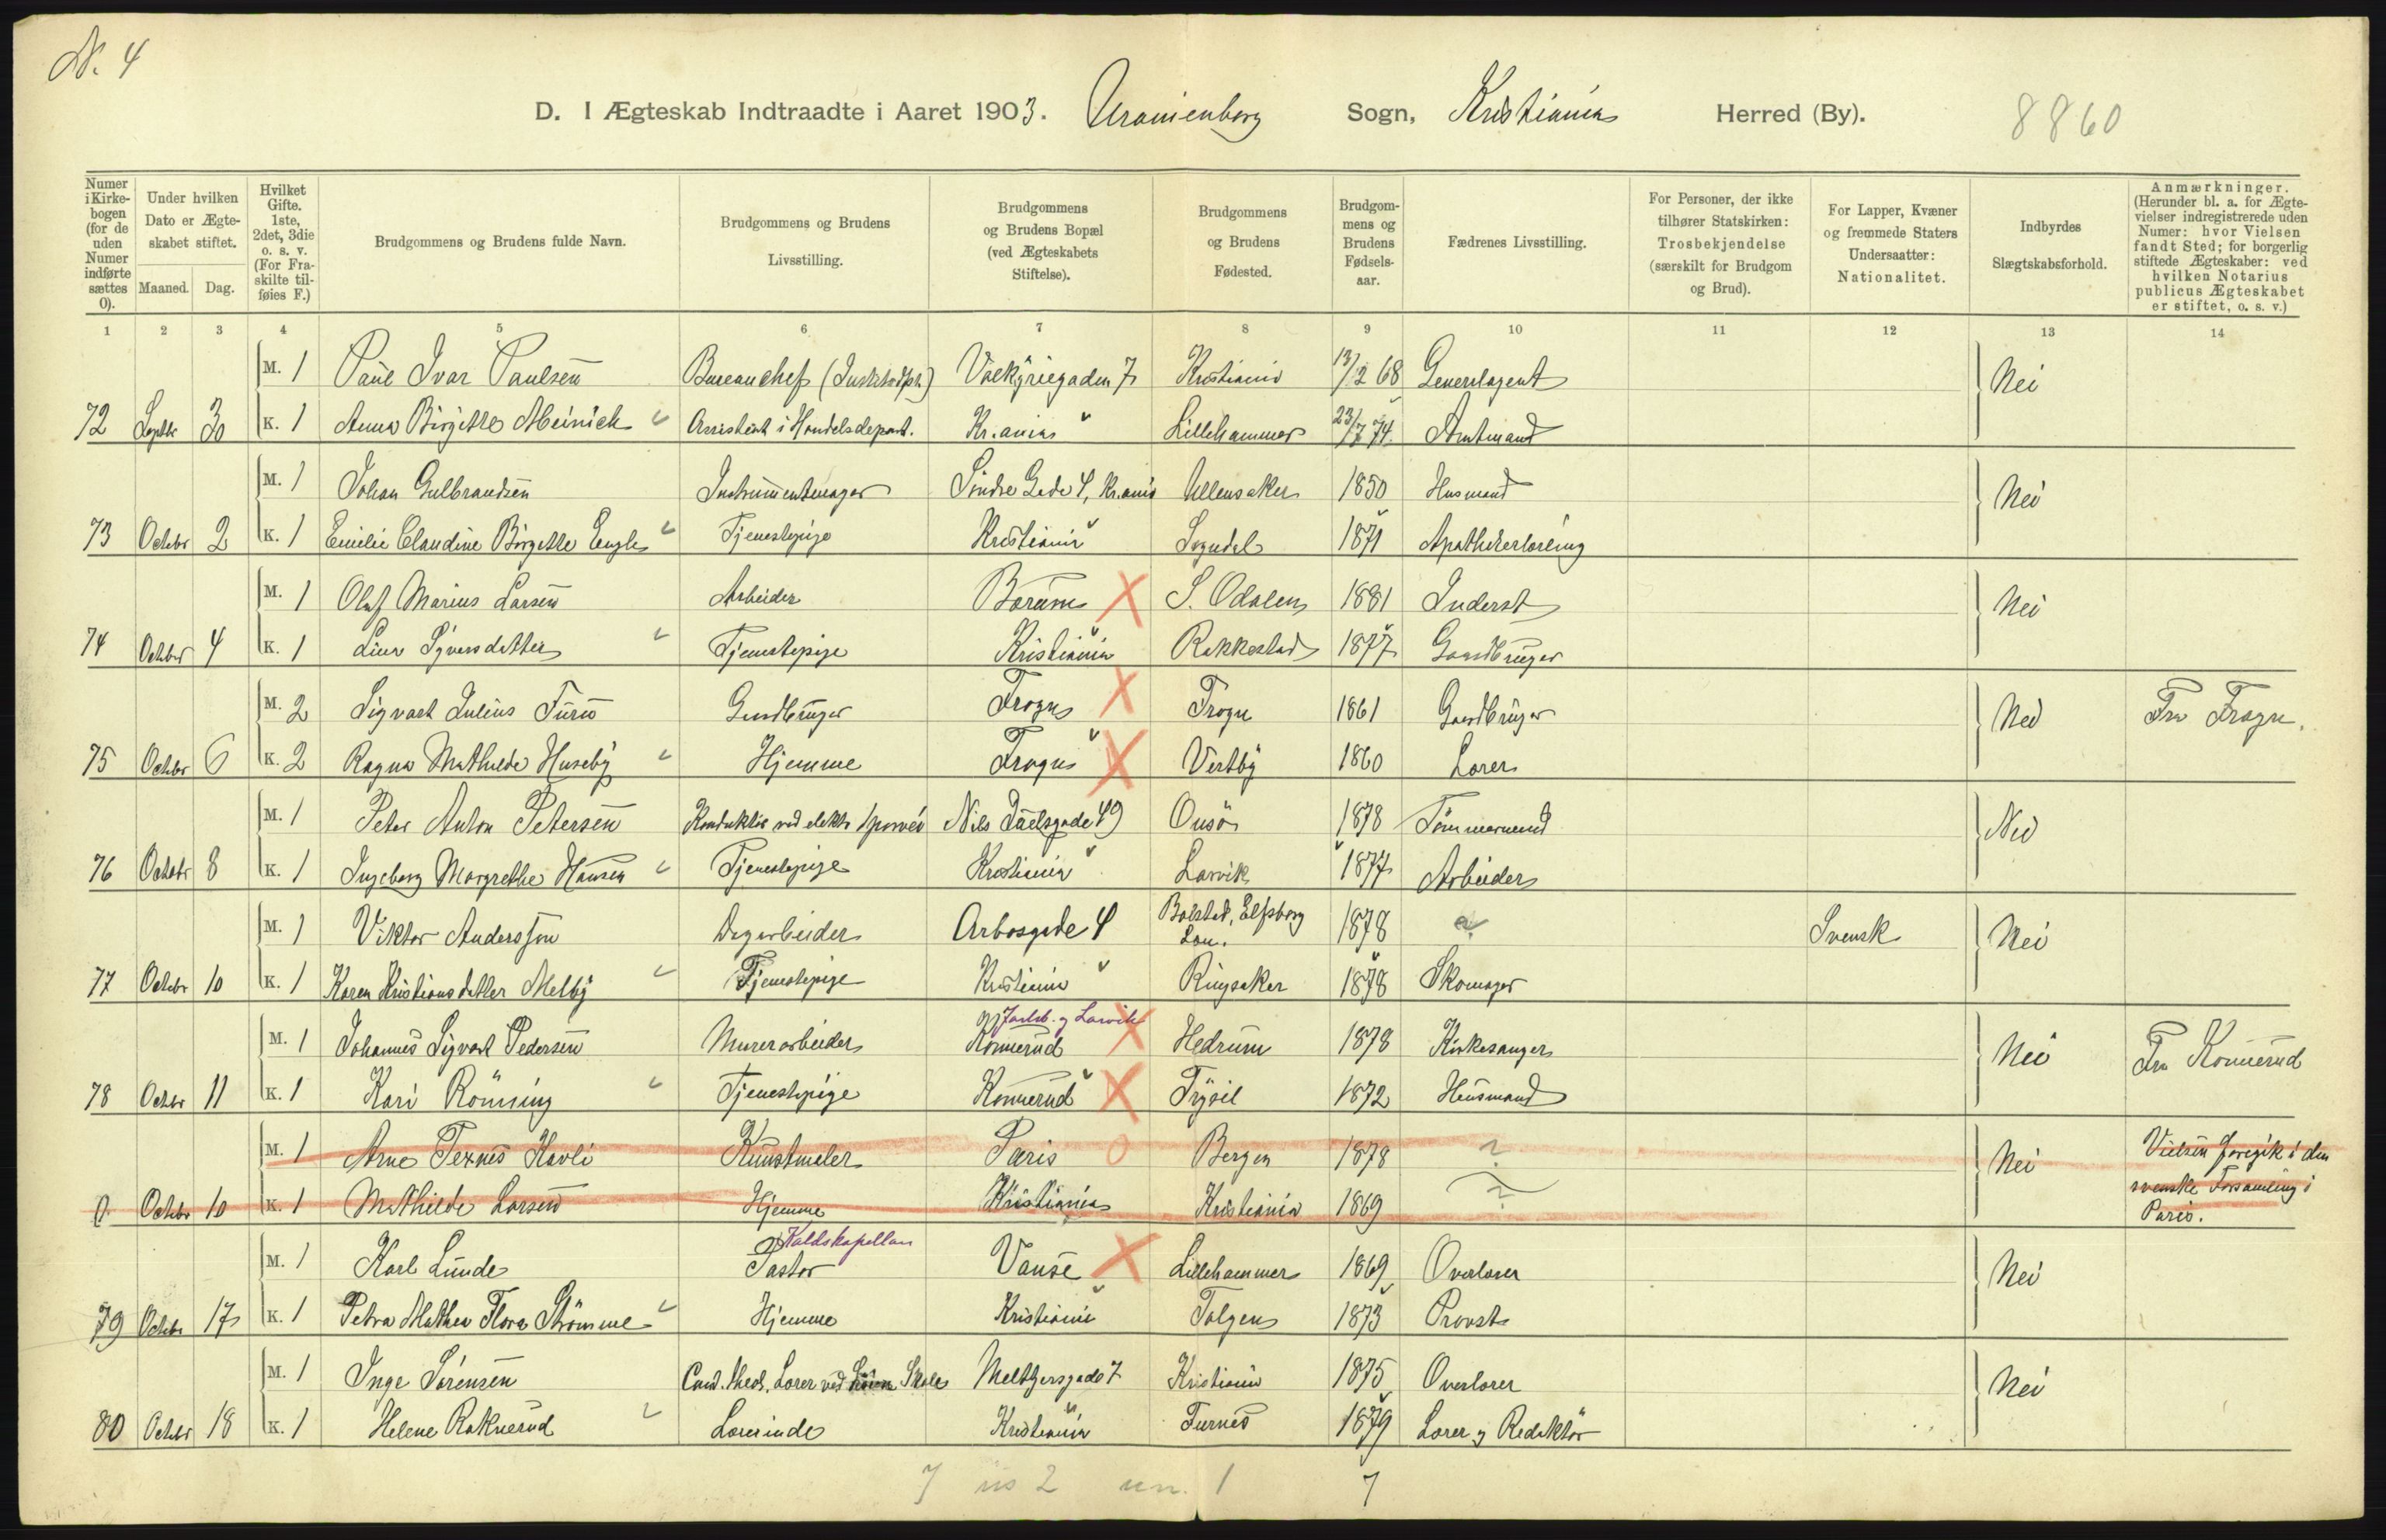 N. 4
D. I Ægteskab Indtraadte i Aaret 1903. Uranienborg Sogn, Kristiania Herred (By). 8860
Numer i Kirke-bogen (for de uden Numer indførte sættes 0).
Under hvilken Dato er Ægte-skabet stiftet. Maaned. Dag.
Hvilket Gifte. 1ste, 2det, 3die o. s. v. (For Fra-skilte til-føies F.)
Brudgommens og Brudens fulde Navn.
Brudgommens og Brudens Livsstilling.
Brudgommens og Brudens Bopæl (ved Ægteskabets Stiftelse).
Brudgommens og Brudens Fødested.
Brudgom-mens og Brudens Fødsels-aar.
Fædrenes Livsstilling.
For Personer, der ikke tilhører Statskirken: Trosbekjendelse (særskilt for Brudgom og Brud).
For Lapper, Kvæner og fremmede Staters Undersaatter: Nationalitet.
Indbyrdes Slægtskabsforhold.
Anmærkninger. (Herunder bl. a. for Ægte-vielser indregistrerede uden Numer: hvor Vielsen fandt Sted; for borgerlig stiftede Ægteskaber: ved hvilken Notarius publicus Ægteskabet er stiftet, o. s. v.)
1 2 3 4 5 6 7 8 9 10 11 12 13 14
M. 1 Paul Ivar Paulsen Bureauchef Valkyriegaden 7 Kristiania 13/2 68 Generalagent Nei
72 Septbr 30 K. 1 Anna Birgitte Meinich Assistent i Handelsdepart. Kr.ania Lillehammer 23/7 74 Amtmand
M. 1 Johan Gulbrandsen Instrumentmager Søndre Gade 4, Kr.ania Ullensaker 1850 Husmand Nei
73 Octobr 2 K. 1 Emilie Claudine Birgitte Engh Tjenestepige Kristiania Sogndal 1871 Apothekerlærling
M. 1 Olaf Marius Larsen Arbeider Bærum S. Odalen 1881 Inderst Nei
74 Octobr 4 K. 1 Lina Syversdatter Tjenestepige Kristiania Rakkestad 1877 Gaardbruger
M. 2 Sigvart Julius Furu Gaardbruger Frogn Frogn 1861 Gaardbruger Nei Fra Frogn.
75 Octobr 6 K. 2 Ragna Mathilde Huseby Hjemme Frogn Vestby 1860 Lærer
M. 1 Peter Anton Petersen Konduktør ved elektr. sporvei Nils Juelsgade 49 Onsø 1878 Tømmermand Nei
76 Octobr 8 K. 1 Ingeborg Margrethe Hansen Tjenestepige Kristiania Larvik 1877 Arbeider
M. 1 Viktor Andersson Dagarbeider Arbosgade 4 Bolstad, Elfsborg Län. 1878 ? Svensk Nei
77 Octobr 10 K. 1 Karen Kristiansdatter Melby Tjenestepige Kristiania Ringsaker 1878 Skomager
Jarlsb. og Larvik
M. 1 Johannes Sigvart Pedersen Murerarbeider Konnerud Hedrum 1878 Kirkesanger Nei Fra Konnerud
78 Octbr 11 K. 1 Kari Rønning Tjenestepige Konnerud Trysil 1872 Husmand
M. 1 Arne Texnes Kavli Kunstmaler Paris 0 Bergen 1878 ? Nei Vielsen foregik i den
0 Octobr 10 K. 1 Mathilde Larsen Hjemme Kristiania Kristiania 1869 ? svenske Forsamling i
Paris.
Kaldskapellan
M. 1 Karl Lunde Pastor Vanse Lillehammer 1869 Overlærer Nei
79 Octobr 17 K. 1 Petra Mathea Flora Strømme Hjemme Kristiania Tolgen 1873 Provst
M. 1 Inge Sørensen Cand. theol., Lærer ved Skole Meltzersgade 7 Kristiania 1875 Overlærer Nei
80 Octobr 18 K. 1 Helene Raknerud Lærerinde Kristiania Furnes 1879 Lærer og Redaktør
7 us 2 un. 1 7